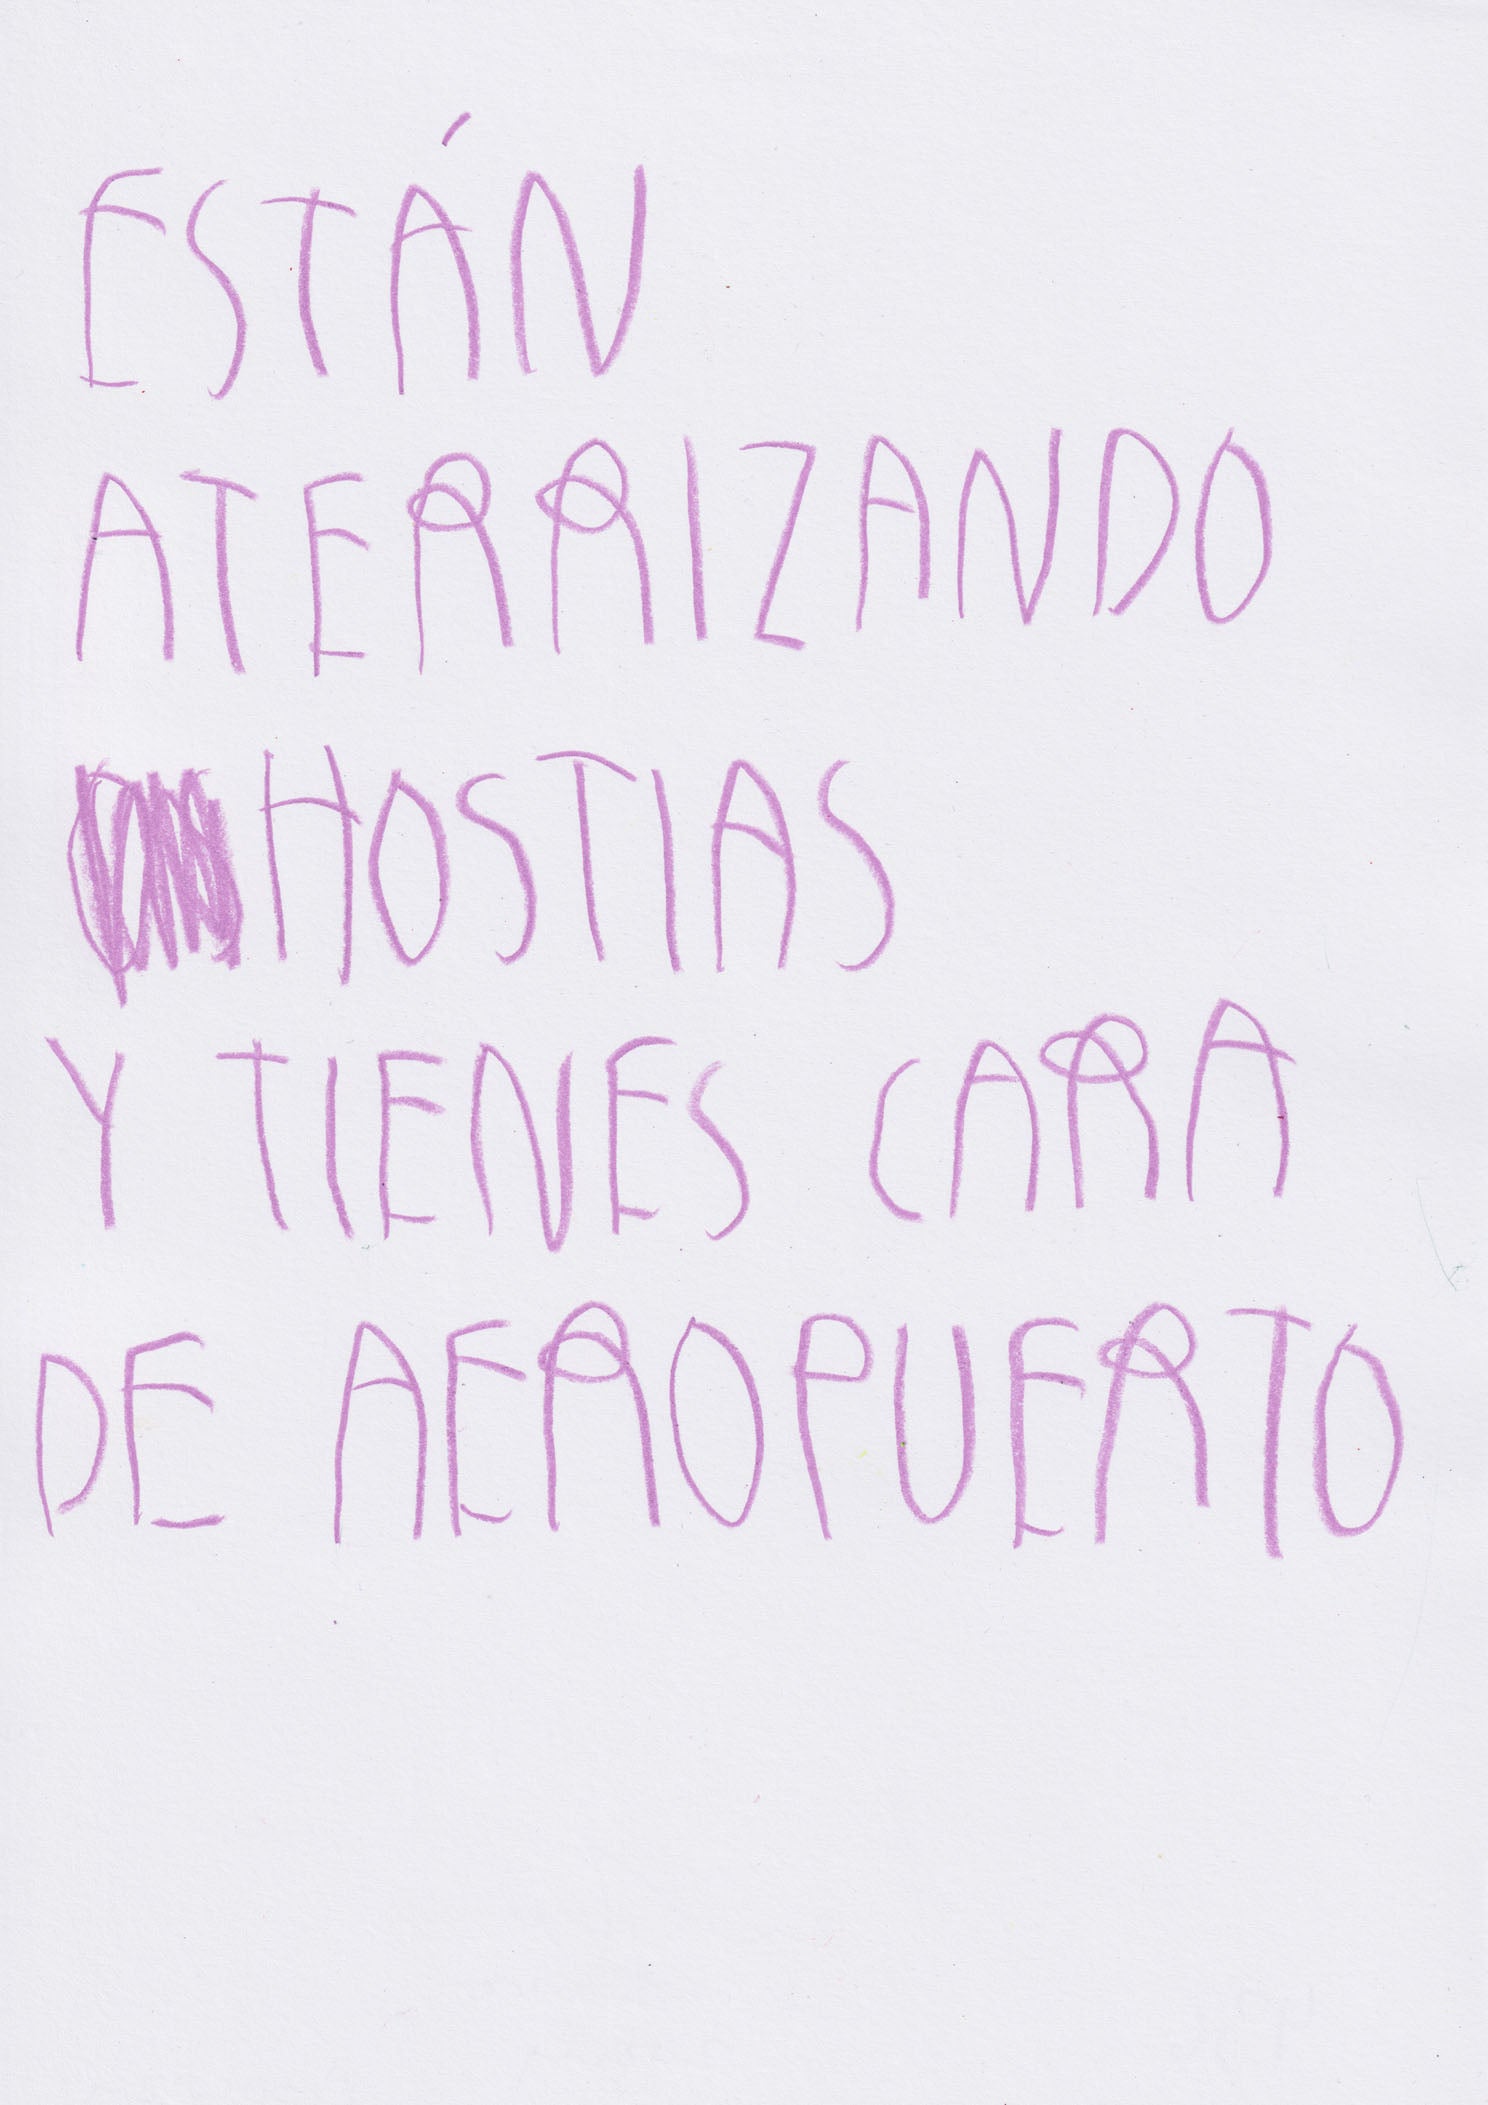 ESTÁN
ATERRIZANDO
HOSTIAS
Y TIENES CARA
DE AEROPUERTO